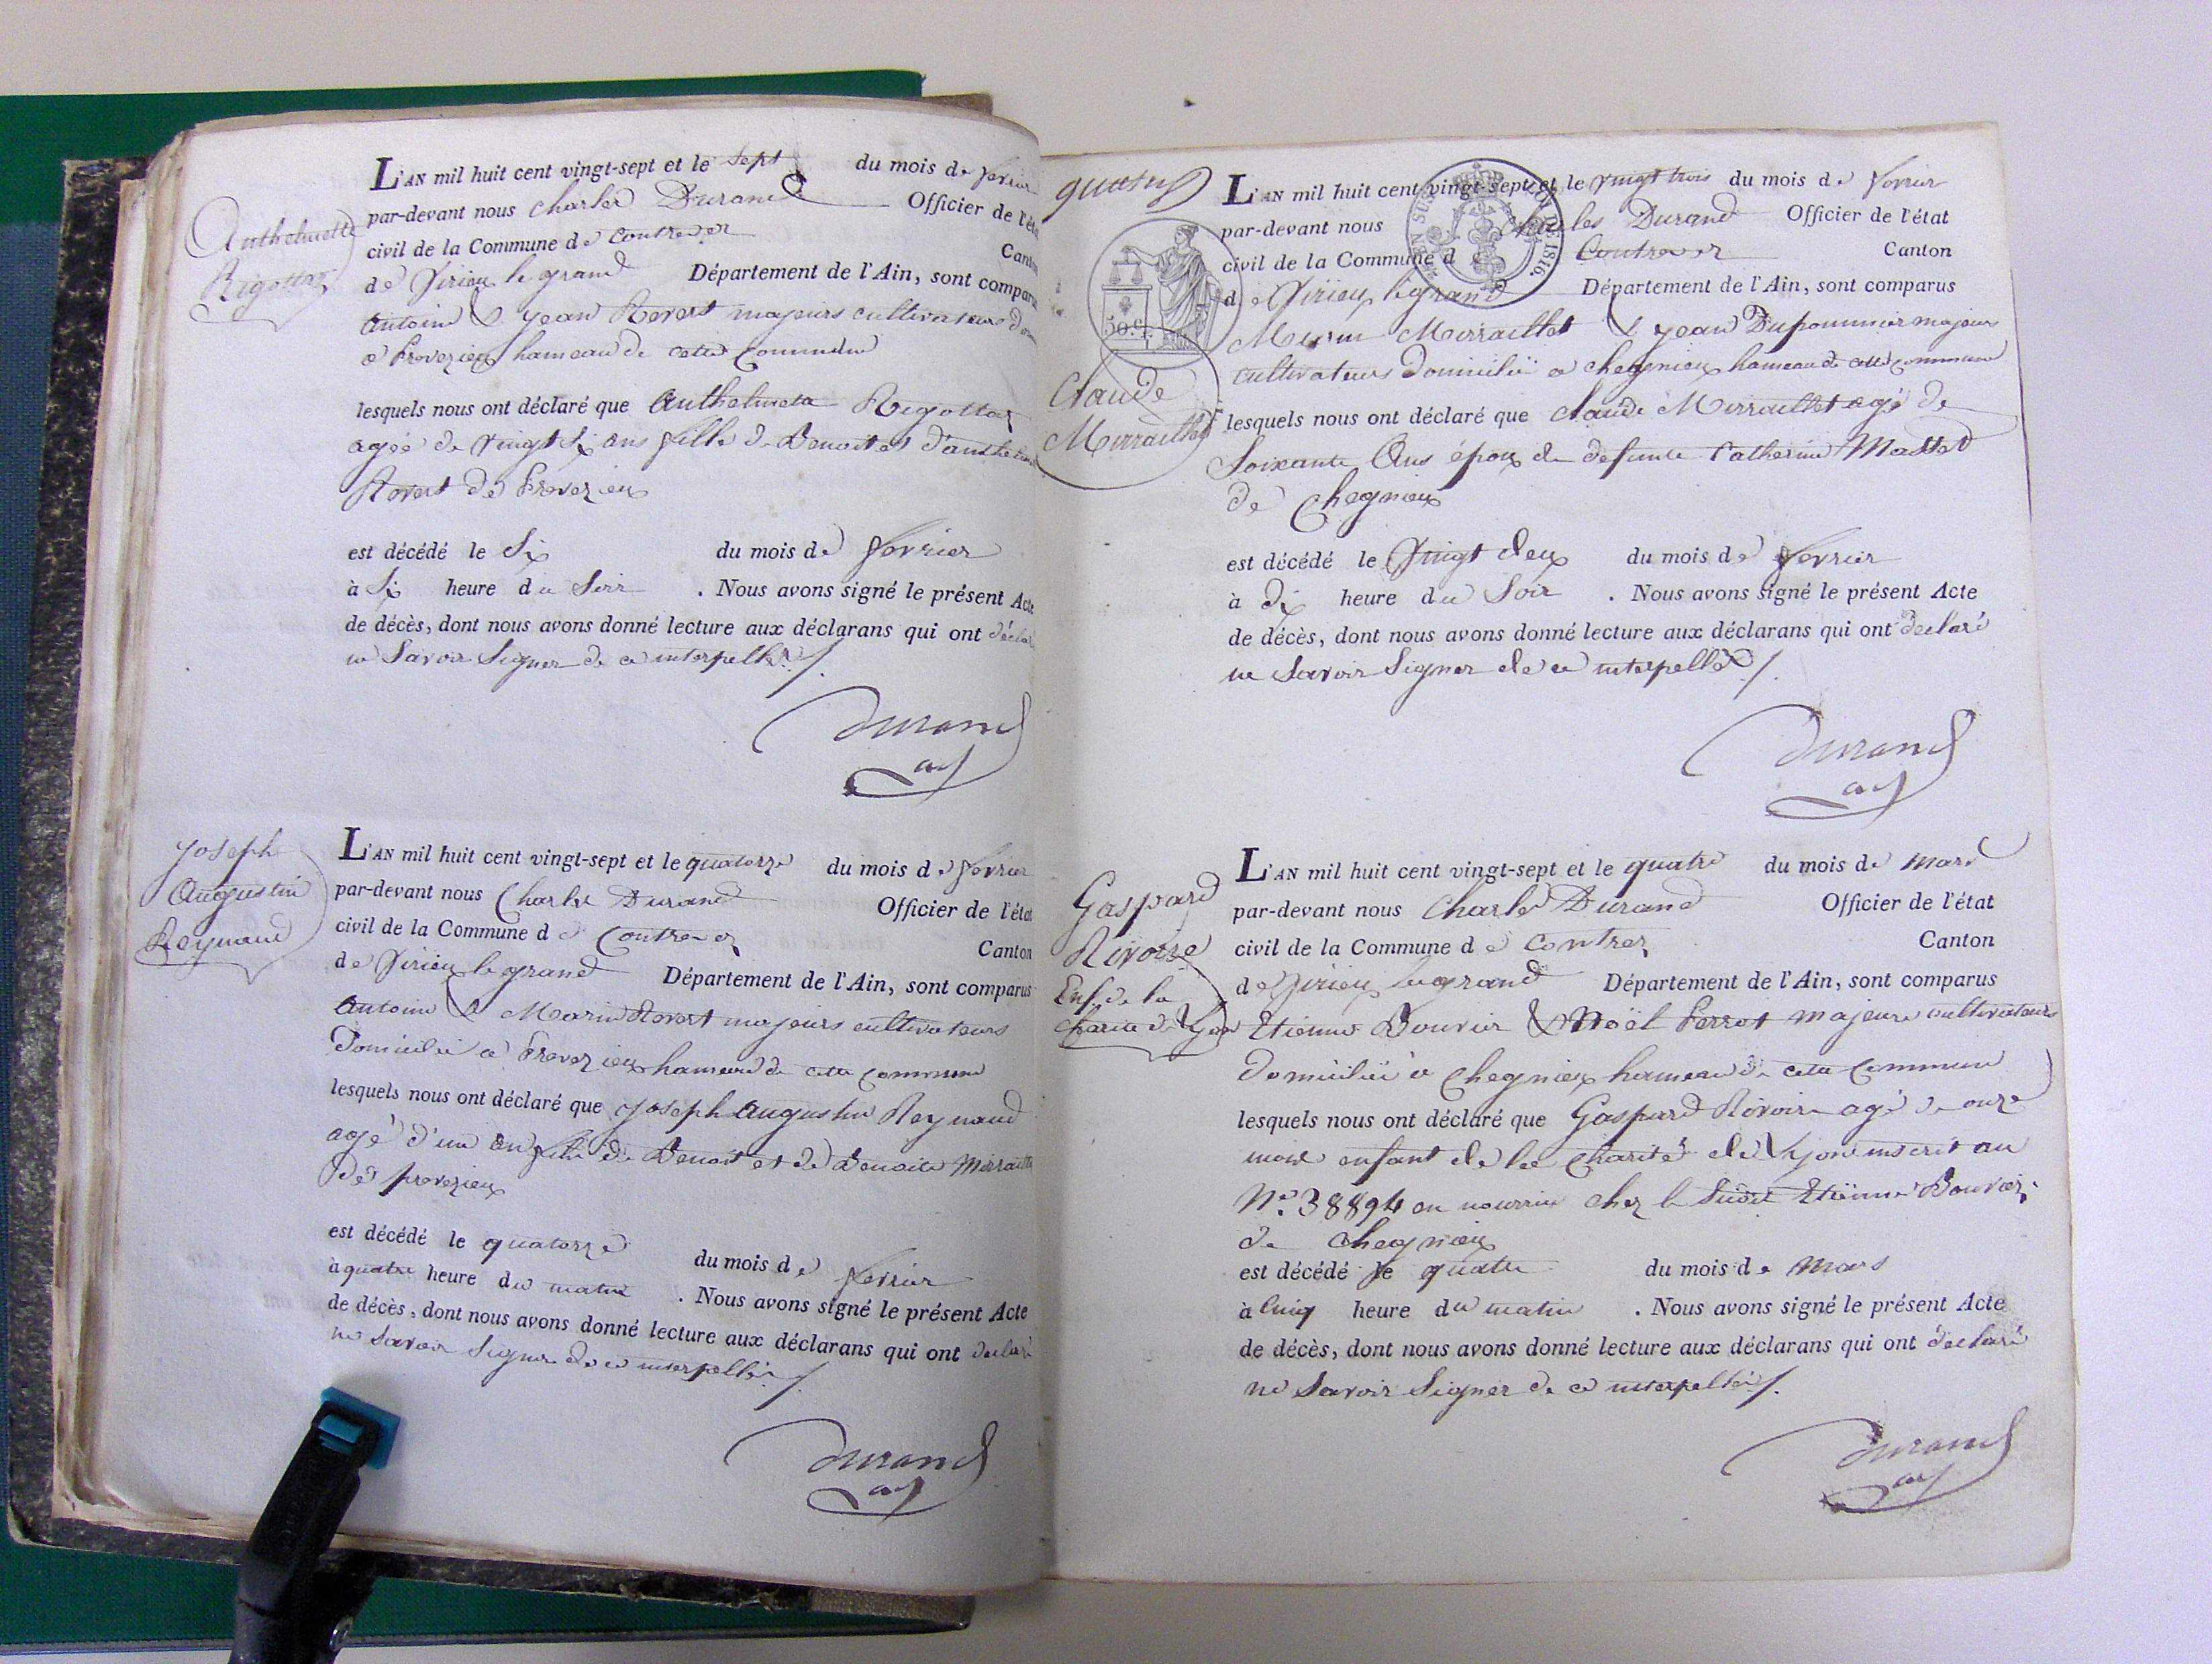 Anthelmette
Rigottaz
L'AN mil huit cent vingt-sept et le sept du mois de fevrier
par-devant nous Charles Durand Officier de l'état
civil de la Commune de Contrevoz Canton
de Virieu le grand Département de l'Ain, sont comparus
Antoine & jean Revert majeurs cultivateurs
a Proverieu hameau de cette commune
lesquels nous ont déclaré que Anthelmette Rigottaz
agée de vingt six ans fille de Benoit et d'anthelmette
Revert de Proverieu
est décédé le Six du mois de fevrier
à Six heure du Soir . Nous avons signé le présent Acte
de décès, dont nous avons donné lecture aux déclarans qui ont déclaré
ne Savoir Signer de ce interpellés /.
Durand
Joseph
Augustin
Reynaud
L'AN mil huit cent vingt-sept et le quatorze du mois de fevrier
par-devant nous Charles Durand Officier de l'état
civil de la Commune de Contrevoz Canton
de Virieu le grand Département de l'Ain, sont comparus
Antoine & Marin Revert majeurs cultivateurs
Domicilié a Proverieu hameau de cette commune
lesquels nous ont déclaré que Joseph Augustin Reynaud
agé d'un an fils de Benoit et de Benoite Mirraillet
de proverieu
est décédé le quatorze du mois de fevrier
à quatre heure du matin . Nous avons signé le présent Acte
de décès, dont nous avons donné lecture aux déclarans qui ont déclaré
ne Savoir Signer de ce interpellés /.
Durand
50 C.
Claude
Mirraillet
L'AN mil huit cent vingt-sept et le vingt trois du mois de fevrier
par-devant nous Charles Durand Officier de l'état
civil de la Commune de Contrevoz Canton
de Virieu le grand Département de l'Ain, sont comparus
Mirraillet & jean Dupommier majeurs
cultivateurs domicilié a chegnieu hameau de cette commune
lesquels nous ont déclaré que Claude Mirraillet agé de
Soixante Ans époux de defunte Catherine Masset
de Chegnieu
est décédé le Vingt deux du mois de fevrier
à dix heure du Soir . Nous avons signé le présent Acte
de décès, dont nous avons donné lecture aux déclarans qui ont declaré
ne Savoir Signer de ce interpellés /.
Durand
Gaspard
Rivoire
Enf. de la
charité de Lyon
L'AN mil huit cent vingt-sept et le quatre du mois de Mars
par-devant nous Charles Durand Officier de l'état
civil de la Commune de Contrevoz Canton
de Virieu le grand Département de l'Ain, sont comparus
Etienne Bouvier & Noël Perrot majeurs cultivateurs
domicilié à Chegnieu hameau de cette Commune
lesquels nous ont déclaré que Gaspard Rivoire agé de onze
mois enfant de la charité de Lyon inscrit au
N.º 38894 en nourrice chez le Sudit Etienne Bouvier
de Chegnieu
est décédé le quatre du mois de Mars
à Cinq heure du matin . Nous avons signé le présent Acte
de décès, dont nous avons donné lecture aux déclarans qui ont déclaré
ne Savoir Signer de ce interpellés /.
Durand